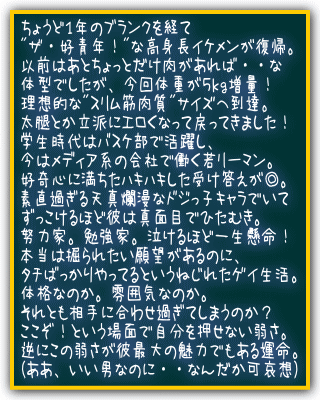 ちょうど1年のブランクを経て
"ザ・好青年！"な高身長イケメンが復帰。
以前はあとちょっとだけ肉があれば・・な
体型でしたが、今回体重が5kg増量！
理想的な"スリム筋肉質"サイズへ到達。
太腿とか立派にエロくなって戻ってきました！
学生時代はバスケ部で活躍し、
今はメディア系の会社で働く若リーマン。
好奇心に満ちたハキハキした受け答えが◎。
素直過ぎる天真爛漫なドジっ子キャラでいて
ずっこけるほど彼は真面目でひたむき。
努力家。勉強家。泣けるほど一生懸命！
本当は掘られたい願望があるのに、
タチばっかりやってるというねじれたゲイ生活。
体格なのか。雰囲気なのか。
それとも相手に合わせ過ぎてしまうのか？
ここぞ！という場面で自分を押せない弱さ。
逆にこの弱さが彼最大の魅力でもある運命。
(ああ、いい男なのに・・なんだか可哀想)